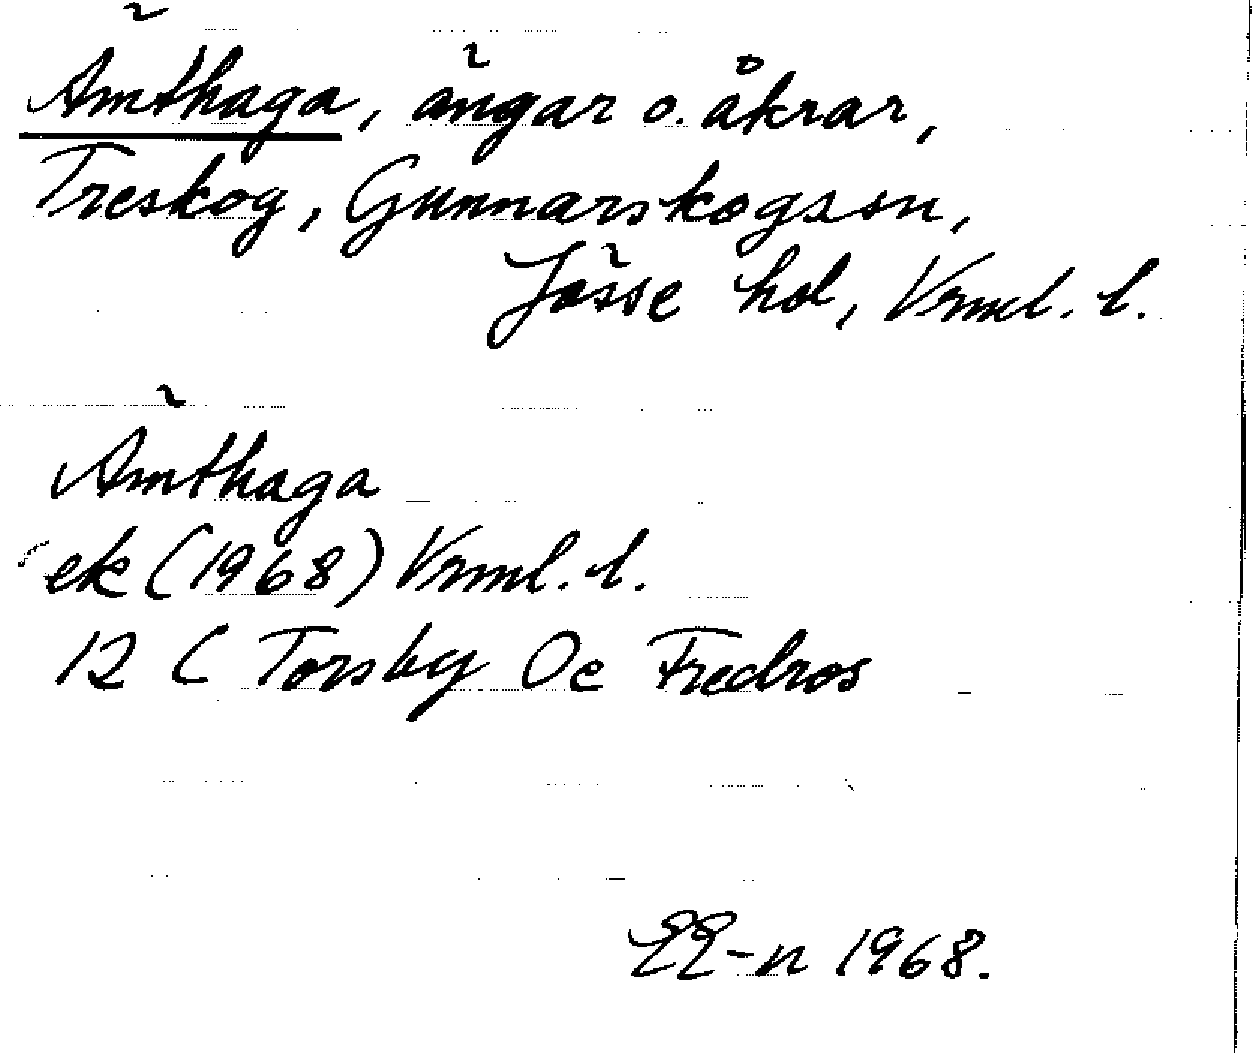 Ämthaga, ängar o. åkrar,
Treskog, Gunnarskogs sn,
Jösse hd, Vrml. l.
Ämthaga
ek (1968) Vrml. l.
12 C Torsby 0c Fredros
EE-n 1968.